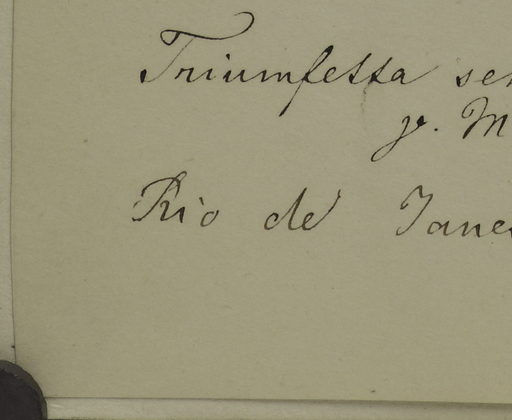 Triumfetta se
γ. M
Rio de Jane